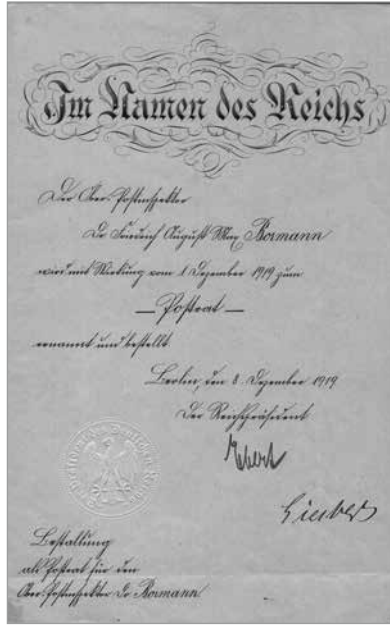 Im Namen des Reichs
Der Ober-Postinspektor
Dr Friedrich August Max Bormann
wird mit Wirkung vom 1. Dezember 1919 zum
— Postrat —
ernannt und bestellt
Berlin, den 8. Dezember 1919
Der Reichspräsident
Ebert
Giesberts
Bestallung
als Postrat für den
Ober-Postinspektor Dr Bormann